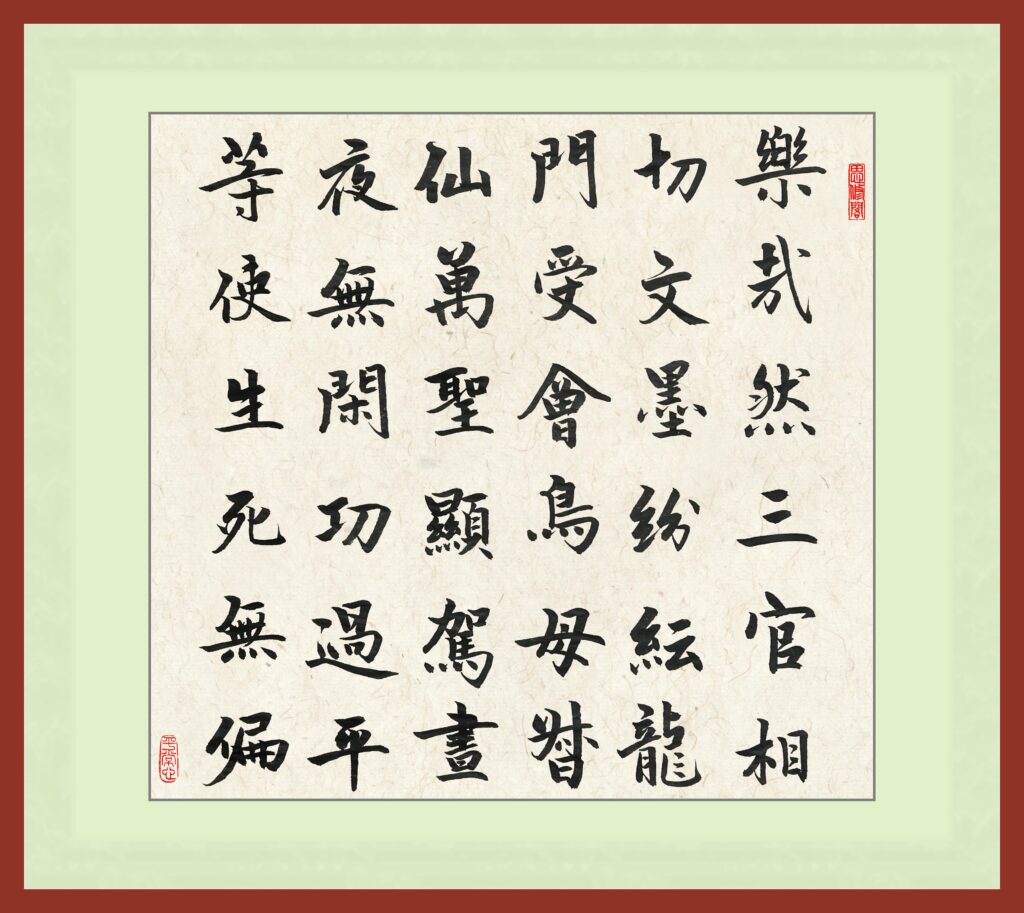 思修閣
樂哉然三官相
切文墨紛紜龍
門受會鳥母
仙萬聖顯駕晝
夜無閑功過平
等使生死無偏
平常心